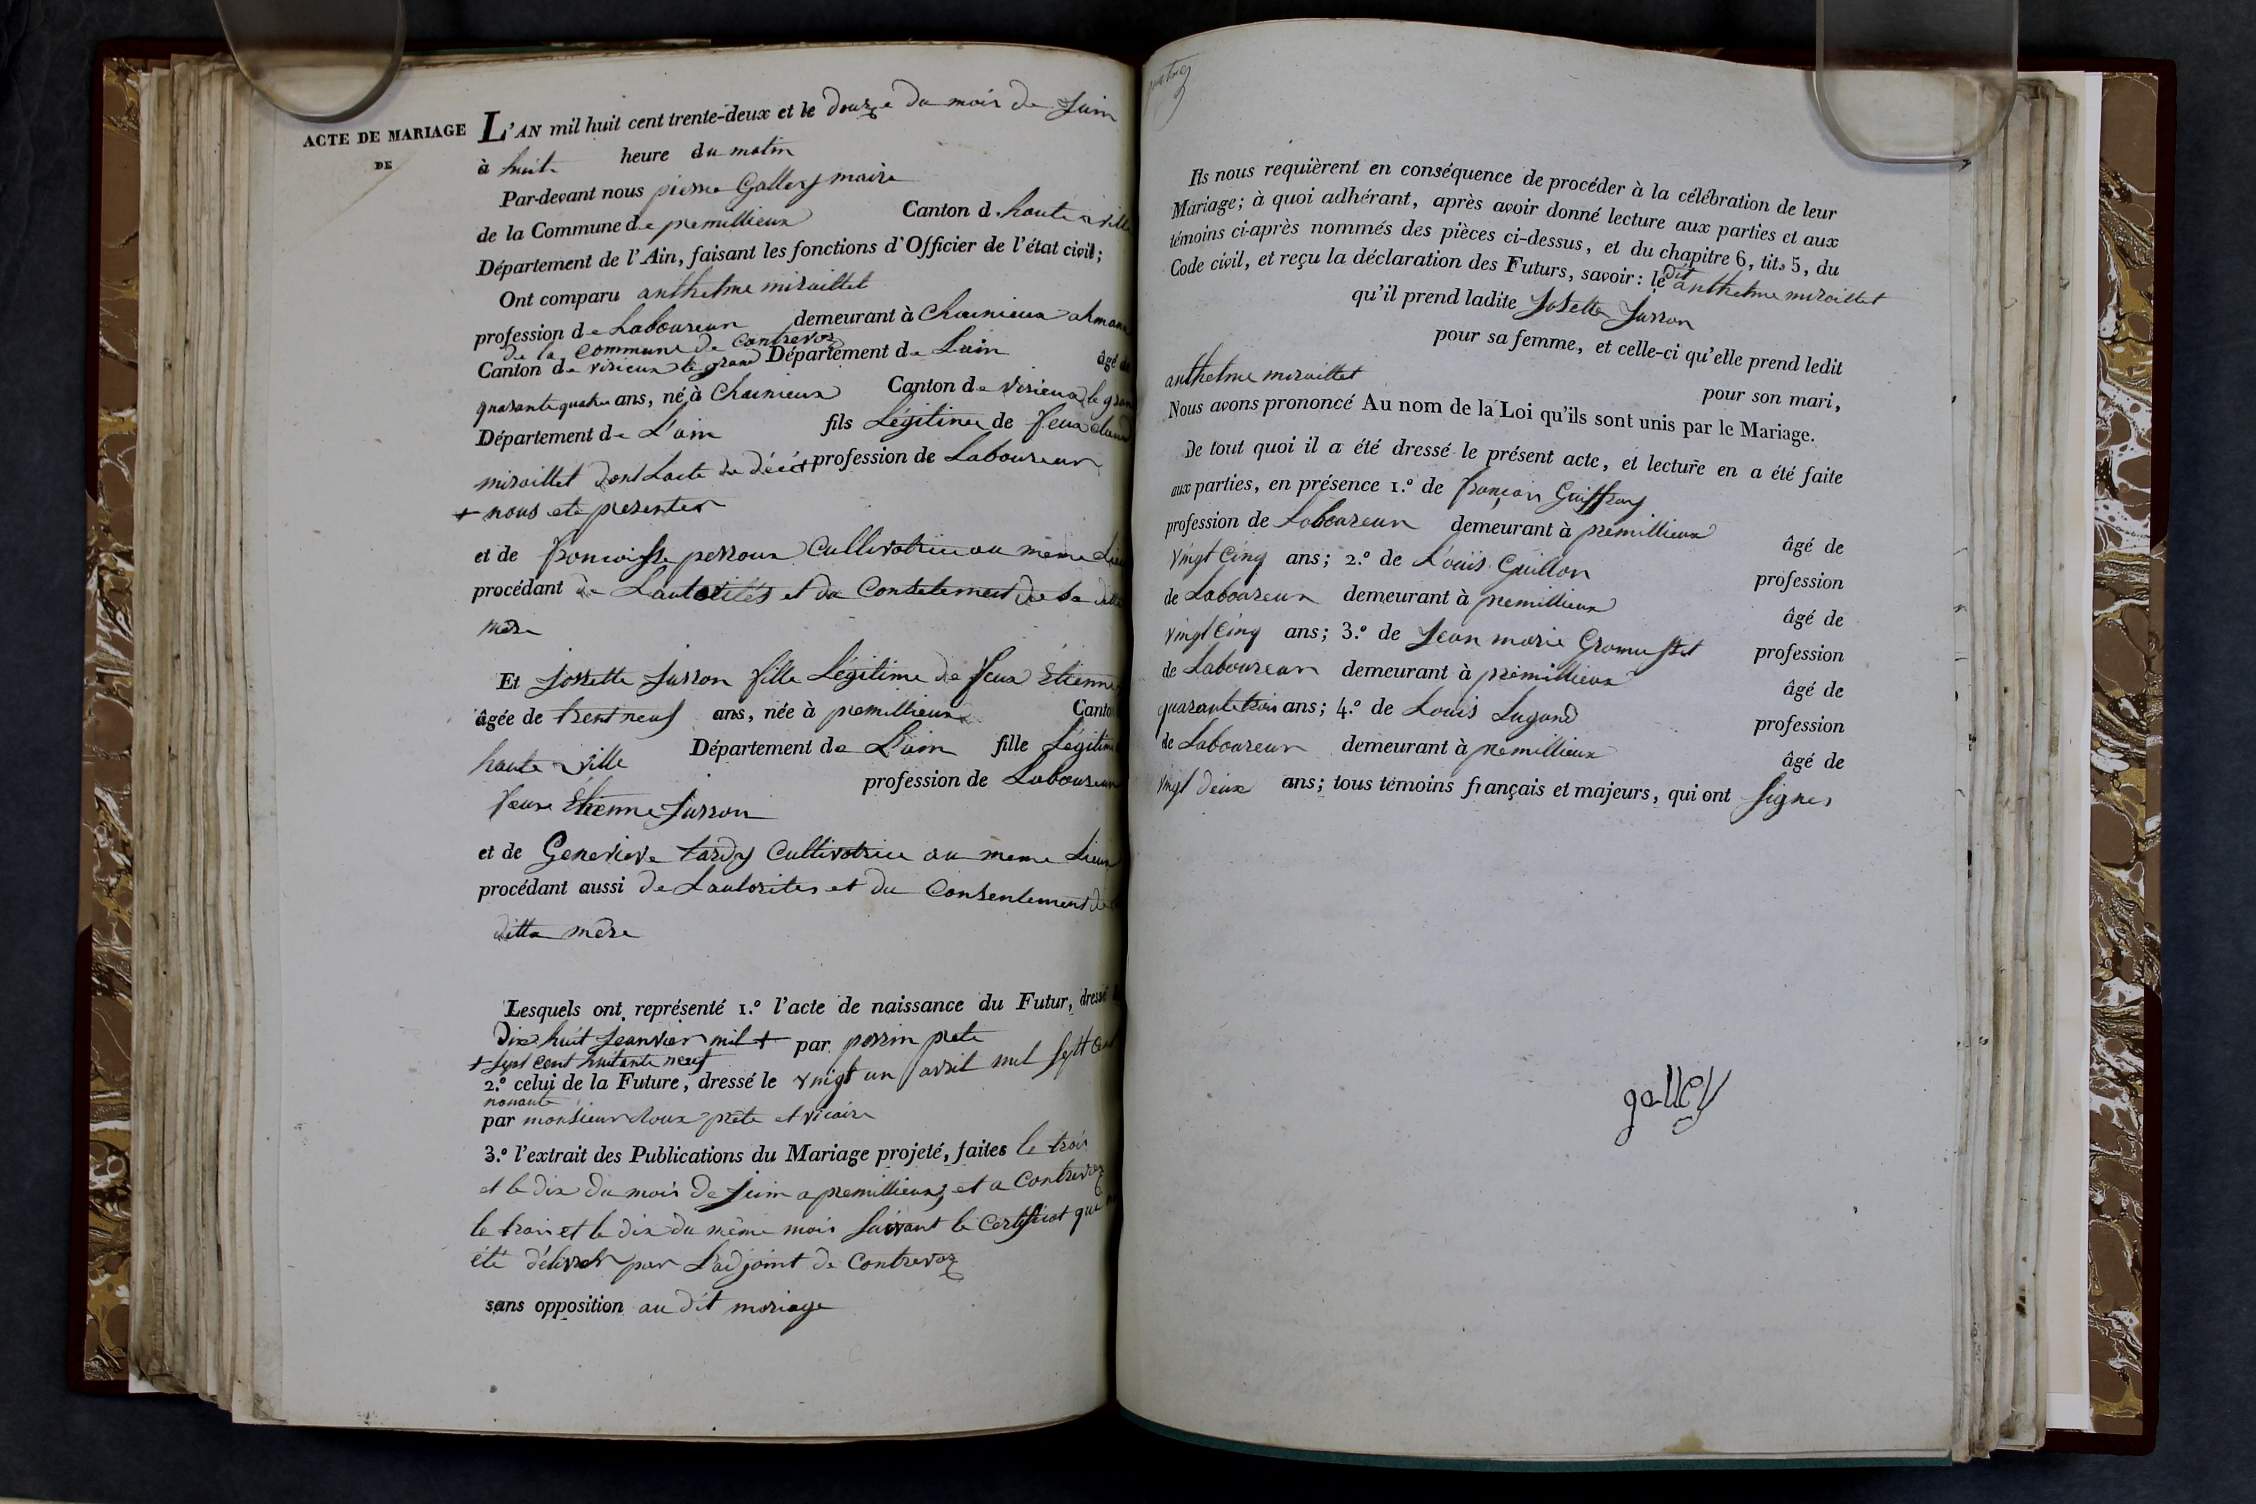 ACTE DE MARIAGE
DE
L'AN mil huit cent trente-deux et le douze du mois de Juin
à huit heure du matin
Par-devant nous pierre Galley maire
de la Commune de premillieux Canton d. haute ville
Département de l'Ain, faisant les fonctions d'Officier de l'état civil;
Ont comparu anthelme miraillet
profession de Laboureur demeurant à Chainieux
de la Commune de Contrevoz
Canton de virieux le grand Département de Lain âgé de
quarante quatre ans, né à Chainieux Canton de virieux le gran
Département de L'ain fils Légitime de feux
miraillet dont Lacte de décé profession de Laboureur
+ nous ete presenter
et de froncoise perroux Cultivatrice au même Lieu
procédant de Lautorités et du Consetement de sa ditte
mère
Et Josette Jurron fille Légitime de feux Etienne
âgée de trent neuf ans, née à premillieux Canto
haute ville Département de Lain fille Légitime
feux Etienne Jurron profession de Laboureur
et de Genevieve tardy Cultivatrice au meme Lieux
procédant aussi de Lautorites et du Consentement de
ditta mère
Lesquels ont représenté 1.º l'acte de naissance du Futur, dressé
Dix huit Jeanvier mil + par perrin prete
+ sept cent huitante neuf
2.º celui de la Future, dressé le vingt un avril mil sept Cent
nonante
par monsieur Roux prete et vicaire
3.º l'extrait des Publications du Mariage projeté, faites le trois
et le dix du mois de Juin a premillieux, et a Contrevoz
le trois et le dix du même mois suivant le Certificat que
été délivré par L'adjoint de Contrevoz
sans opposition au dit mariage
Ils nous requièrent en conséquence de procéder à la célébration de leur
Mariage; à quoi adhérant, après avoir donné lecture aux parties et aux
témoins ci-après nommés des pièces ci-dessus, et du chapitre 6, tit. 5, du
Code civil, et reçu la déclaration des Futurs, savoir: le dit anthelme miraillet
qu'il prend ladite Josette Jurron
pour sa femme, et celle-ci qu'elle prend ledit
anthelme miraillet pour son mari,
Nous avons prononcé Au nom de la Loi qu'ils sont unis par le Mariage.
De tout quoi il a été dressé le présent acte, et lecture en a été faite
aux parties, en présence 1.º de françois Guiffray
profession de Laboureur demeurant à premillieux âgé de
vingt Cinq ans; 2.º de Louis Guillon profession
de Laboureur demeurant à premillieux âgé de
vingt Cinq ans; 3.º de Jean marie Gromustet profession
de Laboureur demeurant à premillieux âgé de
quarante trois ans; 4.º de Louis Lugand profession
de Laboureur demeurant à premillieux âgé de
vingt deux ans; tous témoins français et majeurs, qui ont signés
galley